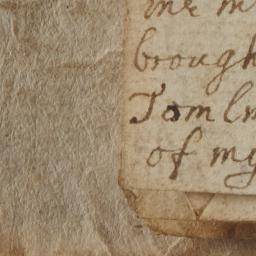 me m
brough
Tom
of my